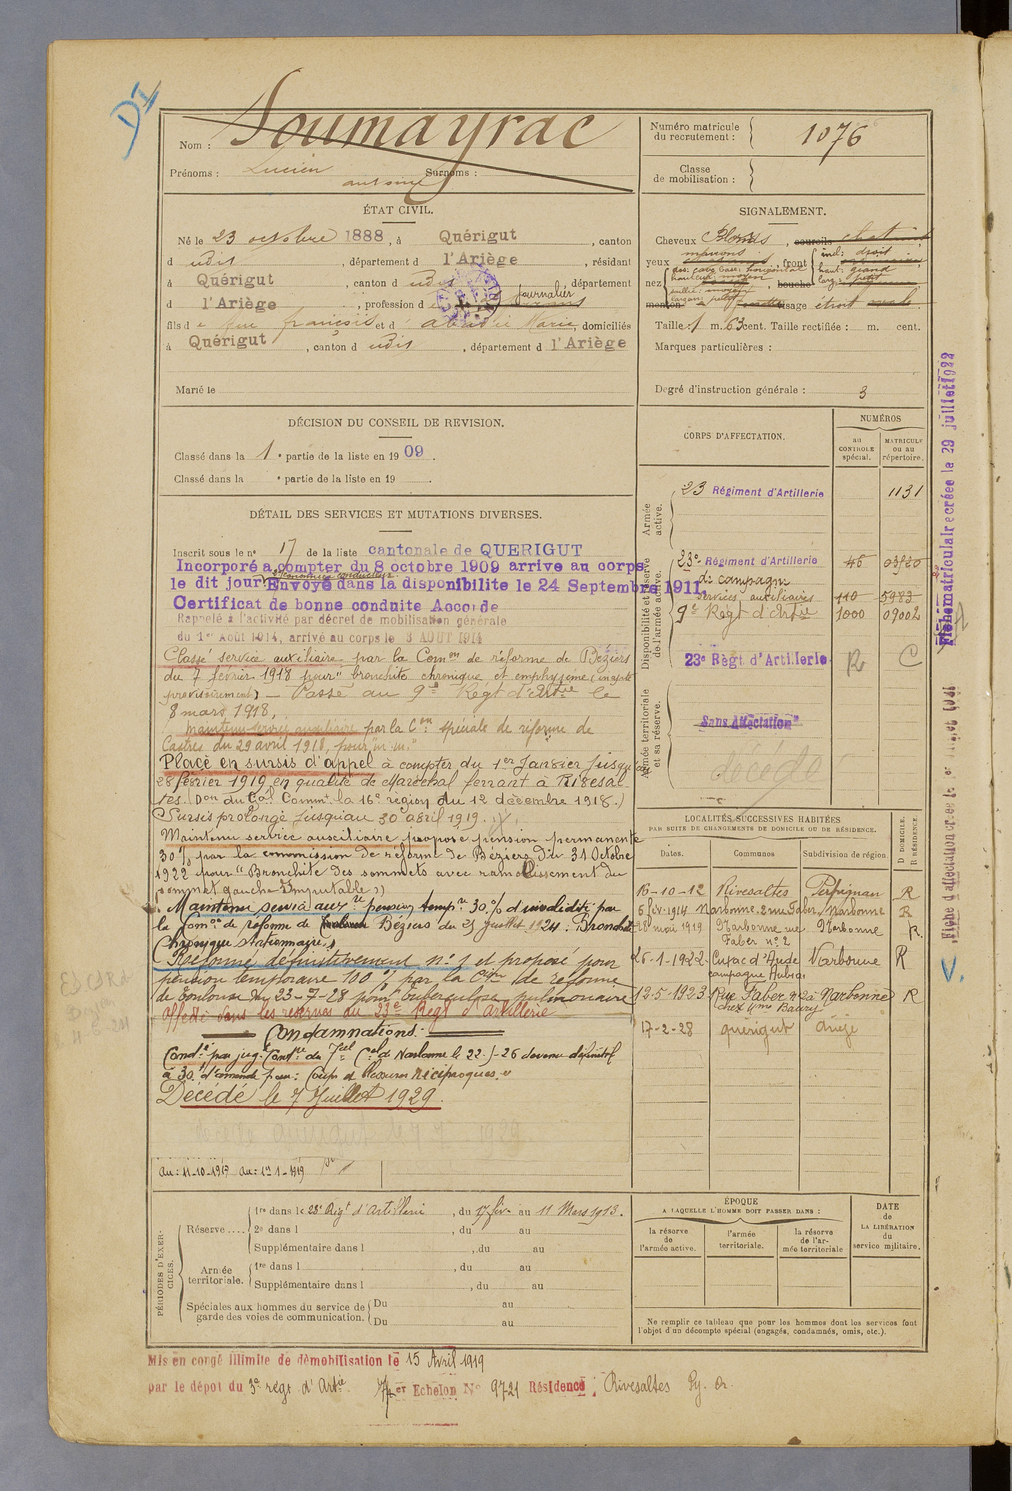 DI
Nom : Soumayrac
Prénoms : Lucien Surnoms :
antoine
Numéro matricule du recrutement : 1076
Classe de mobilisation :
ÉTAT CIVIL.
Né le 23 octobre 1888, à Quérigut, canton
d udit, département d l'Ariège, résidant
à Quérigut, canton d udit, département
d l'Ariège, profession d journalier
fils d e feu françois et d' Abadie Marie, domiciliés
à Quérigut, canton d udit, département d l'Ariège
Marié le
SIGNALEMENT.
Cheveux Blonds, sourcils chatains
yeux marrons, front incl: droit
haut: grand
larg: petit
nez dos: cave base: horizontal
hauteur: moyen
saillie: moyen
largeur: petit
bouche
menton visage étroit ovale
Taille : 1 m. 63 cent. Taille rectifiée : m. cent.
Marques particulières :
Degré d'instruction générale : 3
DÉCISION DU CONSEIL DE REVISION.
Classé dans la 1e partie de la liste en 1909.
Classé dans la e partie de la liste en 19
DÉTAIL DES SERVICES ET MUTATIONS DIVERSES.
Inscrit sous le no 17 de la liste cantonale de QUERIGUT
Incorporé a compter du 8 octobre 1909 arrive au corps
le dit jour Envoyé dans la disponibilite le 24 Septembre 1911
2e canonnier conducteur.
Certificat de bonne conduite Accorde
Rappelé à l'activité par décret de mobilisation générale
du 1er Août 1914, arrivé au corps le 3 AOUT 1914
Classé service auxiliaire par la Comon de réforme de Béziers
du 7 février 1918 pour "bronchite chronique et emphysème (inapte
provisoirement) — Passé au 9e Régt d'Artie le
8 mars 1918,
maintenu service auxiliaire par la Con spéciale de réforme de
Castres du 29 avril 1918, pour "m. m."
Placé en sursis d'appel à compter du 1er Janvier jusqu'au
28 février 1919 en qualité de Maréchal ferrant à Rivesal-
tes. (Don du Gal Commt la 16e région du 12 décembre 1918.)
Sursis prolongé jusquau 30 avril 1919.
Maintenu service auxiliaire proposé pension permanente
30% par la commission de réforme de Béziers du 31 Octobre
1922 pour "Bronchite des sommets avec ramollissement du
sommet gauche Imputable"
Maintenu service auxre pension tempre 30% d'invalidité par
la Comon de réforme de Béziers du 25 Juillet 1924. Bronchite
Chronique Stationnaire
Réformé définitivement no 1 et proposé pour
pension temporaire 100% par la Con de réforme
de Toulouse du 23-7-28 pour tuberculose pulmonaire
Affecté dans les réserves du 23e Régt d'artillerie
Condamnations.
Condé par jugt Contre du Tal Cel de Narbonne le 22-1-26 devenu définitif
à 30f d'amende pour: Coups et blessures réciproques.
Décédé le 7 Juillet 1929.
au: 11-10-1919 au: 1er 1-1919
CORPS D'AFFECTATION.
NUMÉROS
au CONTROLE spécial.
MATRICULE ou au répertoire.
Armée active.
23 Régiment d'Artillerie 1131
Disponibilité et réserve de l'armée active.
23e Régiment d'Artillerie 46 03720
de campagne
services auxiliaires 110 5983
9e Régt d'Artie 1000 09002
23e Régt d'Artillerie R C
Armée territoriale et sa réserve.
Sans Affectation
décédé
LOCALITÉS SUCCESSIVES HABITÉES
PAR SUITE DE CHANGEMENTS DE DOMICILE OU DE RÉSIDENCE.
Dates. Communes Subdivision de région. D DOMICILE. R RÉSIDENCE.
16-10-12 Rivesaltes Perpignan R
6 fév-1914 Narbonne, 2 rue Faber Narbonne R
28 mai 1919 Narbonne rue Faber no 2 Narbonne R.
26-1-1922 Cuxac d'Aude Narbonne R
campagne
12-5-1923 Rue Faber no 2 à Narbonne R
chez Mme Baury
17-2-28 quérigut Ariège
PÉRIODES D'EXERCICES.
Réserve....
1re dans le 23e Régt d'Artillerie, du 17 fév. au 11 Mars 1913.
2e dans l , du au
Supplémentaire dans l , du au
Armée territoriale.
1re dans l , du au
Supplémentaire dans l , du au
Spéciales aux hommes du service de garde des voies de communication.
Du au
Du au
ÉPOQUE
A LAQUELLE L'HOMME DOIT PASSER DANS :
la réserve de l'armée active.
l'armée territoriale.
la réserve de l'armée territoriale
DATE de LA LIBÉRATION du service militaire.
Ne remplir ce tableau que pour les hommes dont les services font
l'objet d'un décompte spécial (engagés, condamnés, omis, etc.).
Mis en congé illimité de démobilisation le 15 Avril 1919
par le dépot du 3e régt d'Artie. 7er Echelon No 9721 Résidence : Rivesaltes Py. Or.
Fiche matriculaire créée le 29 juillet 1922